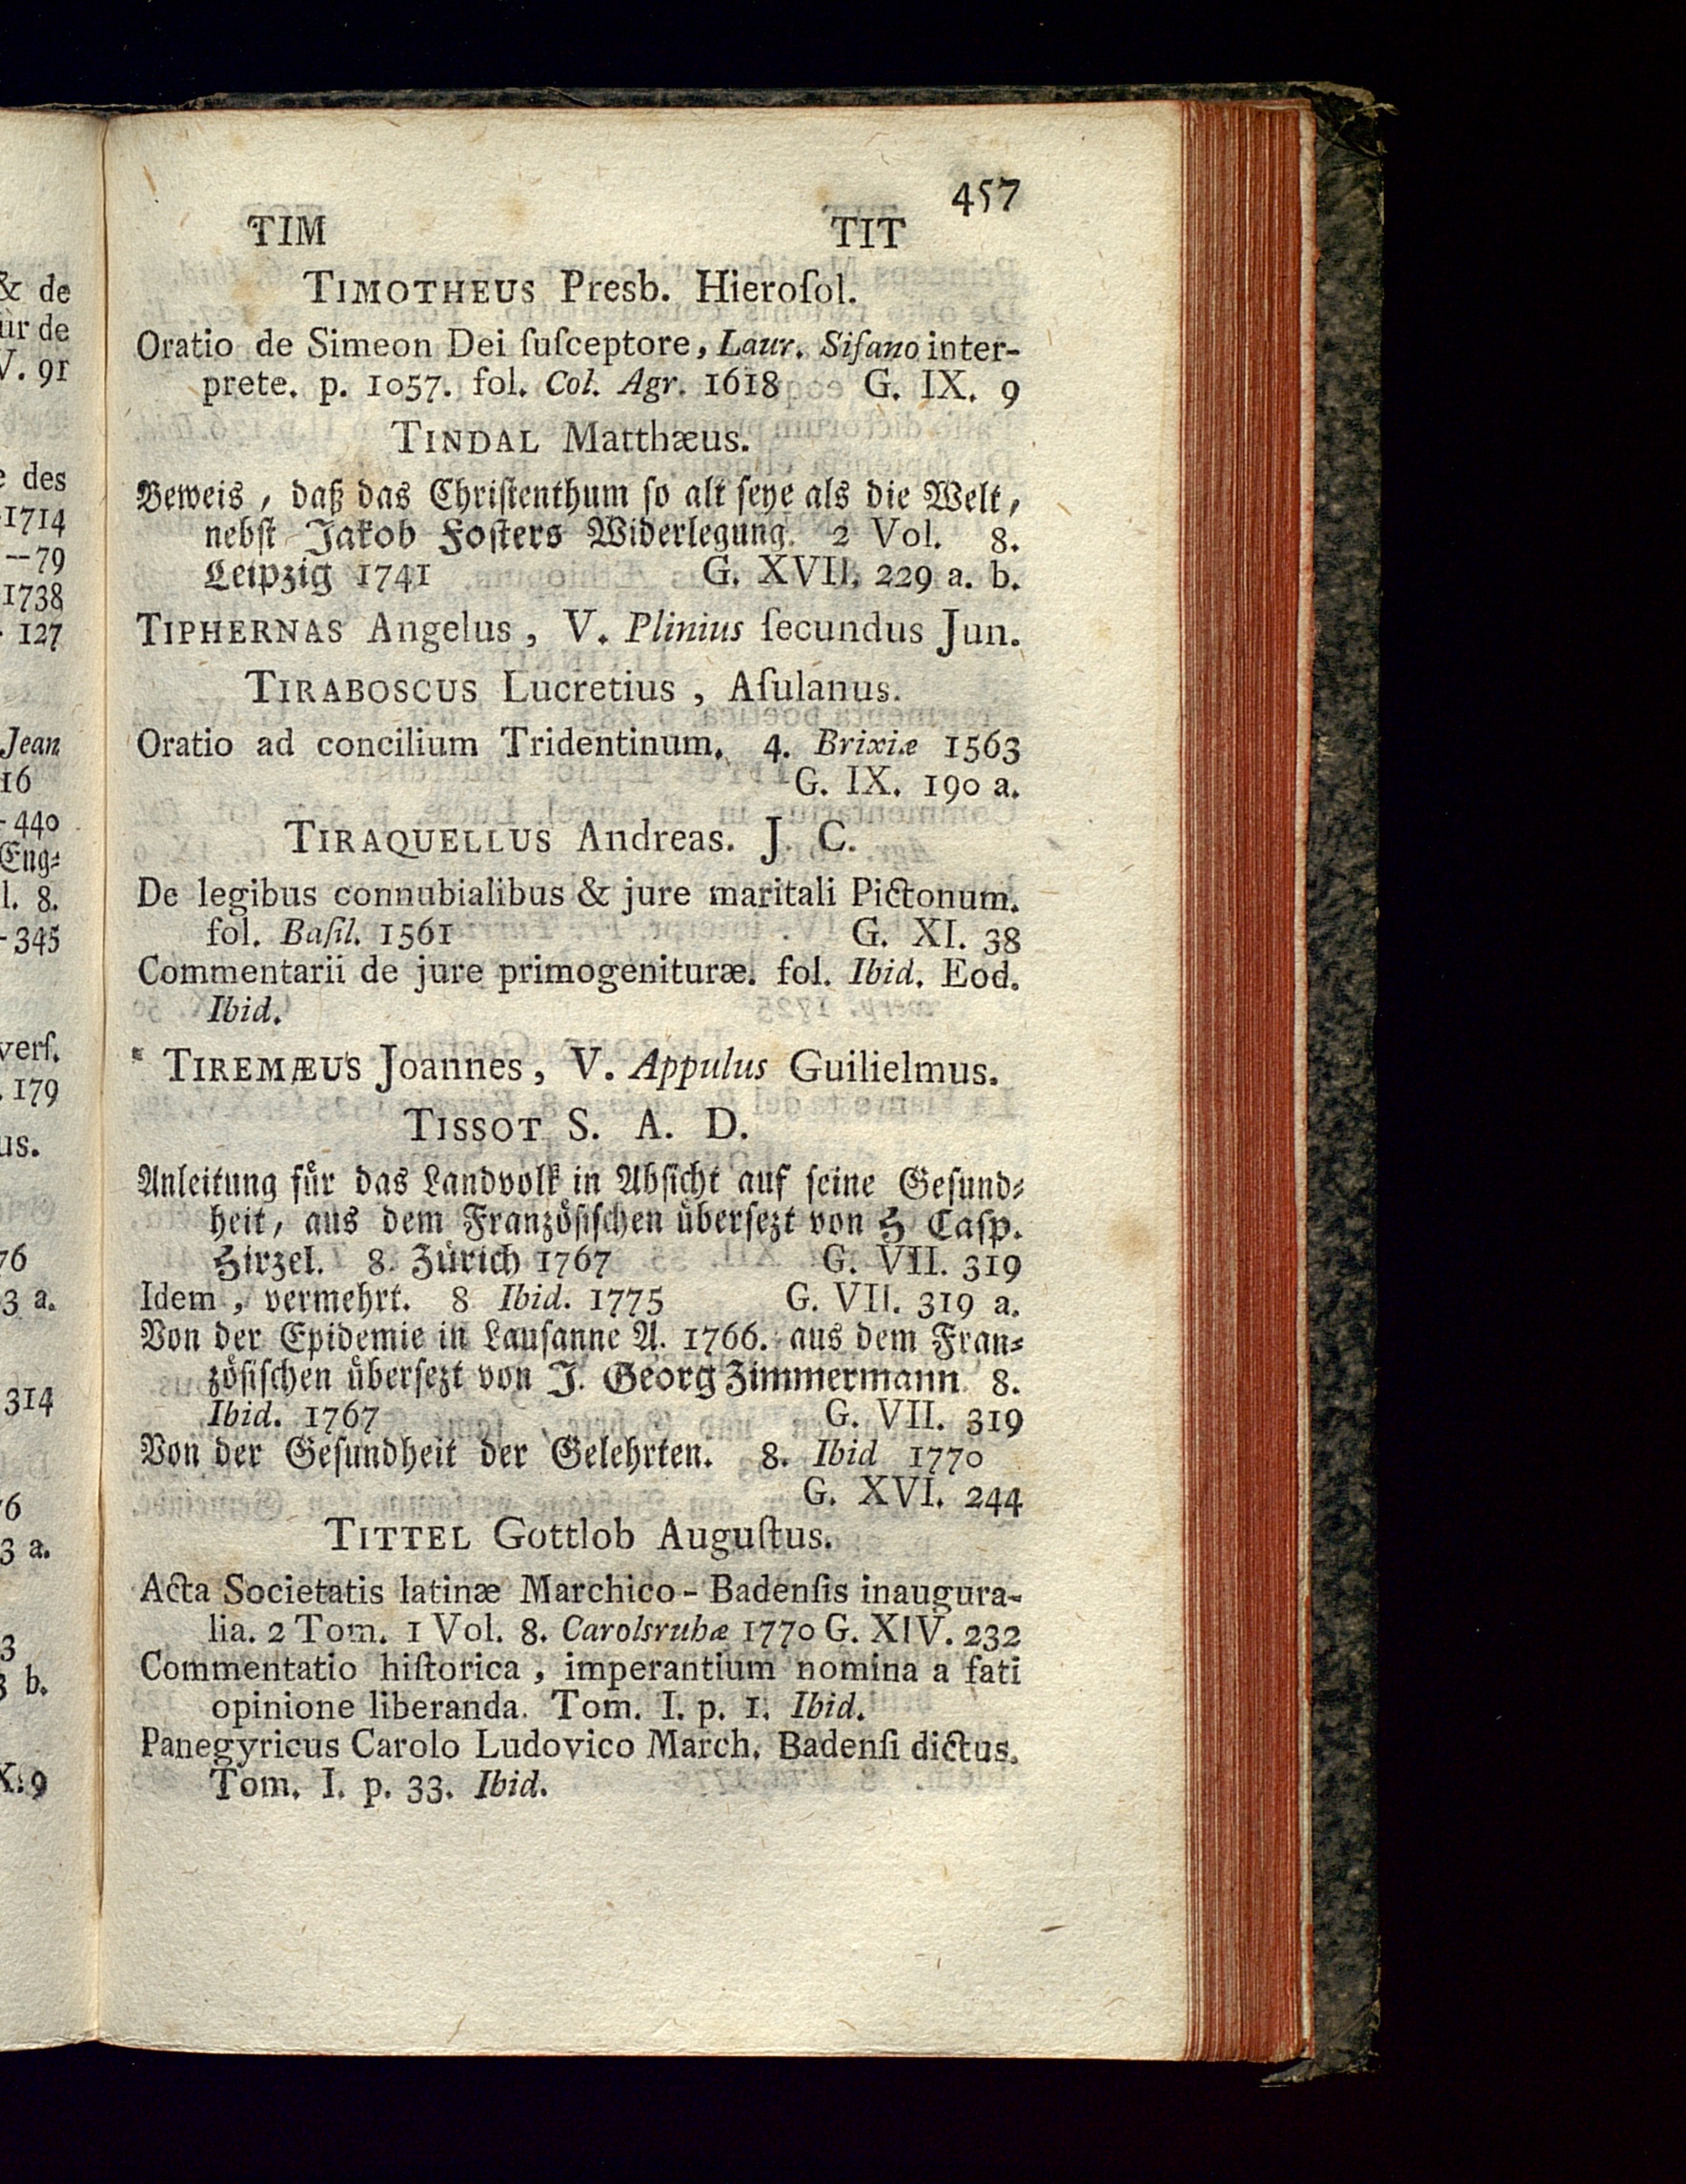 457
TIM TIT
TIMOTHEUS Presb. Hieroſol.
Oratio de Simeon Dei ſuſceptore, Laur. Siſano inter-
prete. p. 1057. fol. Col. Agr. 1618 G. IX. 9
TINDAL Matthæus.
Beweis, daß das Chriſtenthum ſo alt ſeye als die Welt,
nebſt Jakob Foſters Widerlegung. 2 Vol. 8.
Leipzig 1741 G. XVII. 229 a. b.
TIPHERNAS Angelus, V. Plinius ſecundus Jun.
TIRABOSCUS Lucretius, Aſulanus.
Oratio ad concilium Tridentinum. 4. Brixiæ 1563
G. IX. 190 a.
TIRAQUELLUS Andreas. J. C.
De legibus connubialibus & jure maritali Pictonum.
fol. Baſil. 1561 G. XI. 38
Commentarii de jure primogenituræ. fol. Ibid. Eod.
Ibid.
TIREMÆUS Joannes, V. Appulus Guilielmus.
TISSOT S. A. D.
Anleitung fuͤr das Landvolk in Abſicht auf ſeine Geſund-
heit, aus dem Franzoͤſiſchen uͤberſezt von H Caſp.
Hirzel. 8. Zuͤrich 1767 G. VII. 319
Idem, vermehrt. 8 Ibid. 1775 G. VII. 319 a.
Von der Epidemie in Lauſanne A. 1766. aus dem Fran-
zoͤſiſchen uͤberſezt von J. Georg Zimmermann 8.
Ibid. 1767 G. VII. 319
Von der Geſundheit der Gelehrten. 8. Ibid 1770
G. XVI. 244
TITTEL Gottlob Auguſtus.
Acta Societatis latinæ Marchico-Badenſis inaugura-
lia. 2 Tom. 1 Vol. 8. Carolsruhæ 1770 G. XIV. 232
Commentatio hiſtorica, imperantium nomina a fati
opinione liberanda. Tom. I. p. 1. Ibid.
Panegyricus Carolo Ludovico March. Badenſi dictus.
Tom. I. p. 33. Ibid.